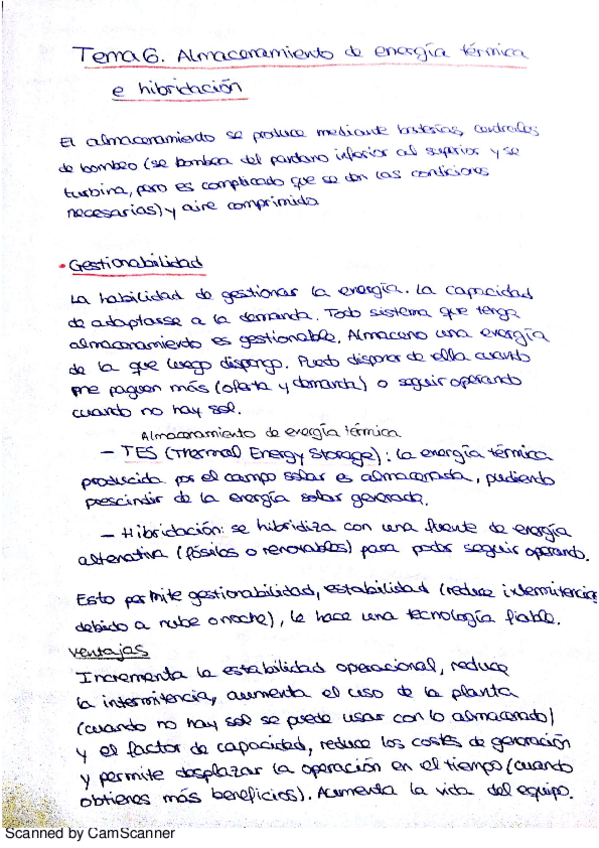 Tema 6. Almacenamiento de energía térmica
e hibridación
El almacenamiento se produce mediante baterías, centrales
de bombeo (se bombea del pantano inferior al superior y se
turbina, pero es complicado que se den las condiciones
necesarias) y aire comprimido
• Gestionabilidad
La habilidad de gestionar la energía. La capacidad
de adaptarse a la demanda. Todo sistema que tenga
almacenamiento es gestionable. Almaceno una energía
de la que luego dispongo. Puedo disponer de ella cuando
me paguen más (oferta y demanda) o seguir operando
cuando no hay sol.
Almacenamiento de energía térmica
— TES (Thermal Energy Storage): la energía térmica
producida por el campo solar es almacenada, pudiendo
prescindir de la energía solar generada.
— Hibridación: se hibridiza con una fuente de energía
alternativa (fósiles o renovables) para poder seguir operando.
Esto permite gestionabilidad, estabilidad (reduce intermitencias
debido a nube o noche), le hace una tecnología fiable.
Ventajas
Incrementa la estabilidad operacional, reduce
la intermitencia, aumenta el uso de la planta
(cuando no hay sol se puede usar con lo almacenado)
y el factor de capacidad, reduce los costes de generación
y permite desplazar la operación en el tiempo (cuando
obtienes más beneficios). Aumenta la vida del equipo.
Scanned by CamScanner